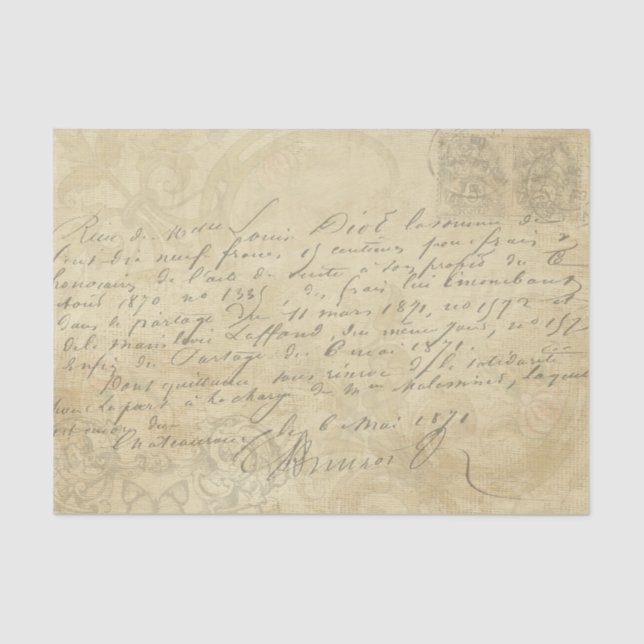 Reçu de Mme Louis Diot la somme de
Cent dix neuf francs, 15 centimes pour frais &
honoraires de l'acte de vente à son profit du
Août 1870 no 1335, des frais lui
dans le partage du 11 mars 1871, no 1572 et
de la mars Laffond, du même jour, no 157
Enfin du Partage du 6 mai 1871.
Dont quittance sous réserve de la solidarité
pour la part à la charge de Mm laque
est encore due
Chateauroux le 6 Mai 1871